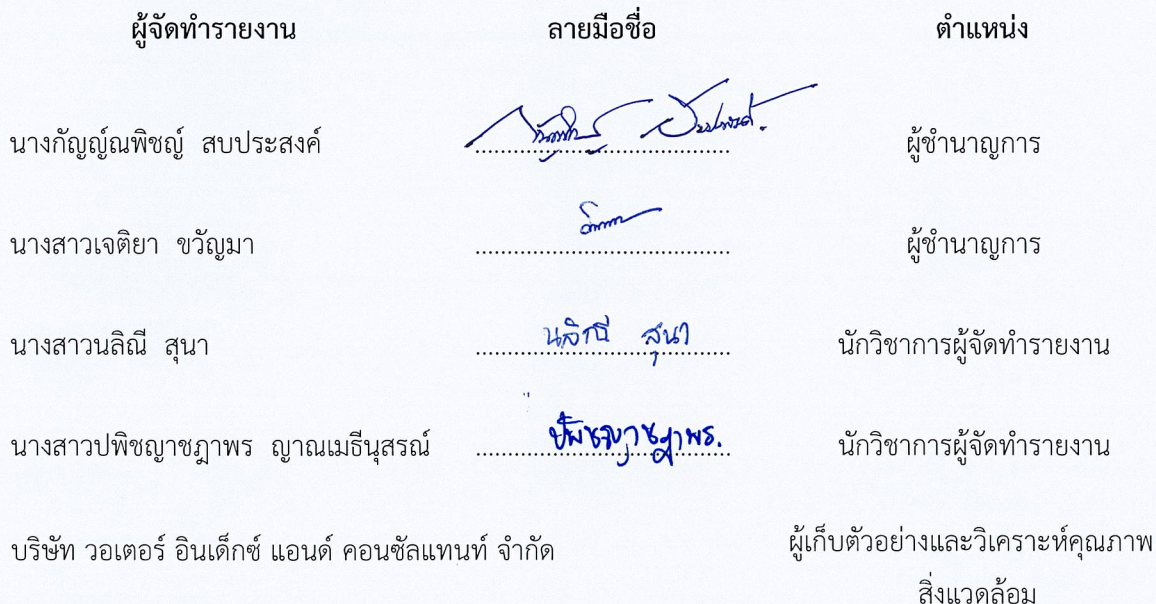 ผู้จัดทำรายงาน ลายมือชื่อ ตำแหน่ง
นางกัญญ์ณพิชญ์ สบประสงค์ ผู้ชำนาญการ
นางสาวเจติยา ขวัญมา ผู้ชำนาญการ
นางสาวนลิณี สุนา นลิณี สุนา นักวิชาการผู้จัดทำรายงาน
นางสาวปพิชญาชฎาพร ญาณเมธีนุสรณ์ ปพิชญาชฎาพร. นักวิชาการผู้จัดทำรายงาน
บริษัท วอเตอร์ อินเด็กซ์ แอนด์ คอนซัลแทนท์ จำกัด ผู้เก็บตัวอย่างและวิเคราะห์คุณภาพ
สิ่งแวดล้อม